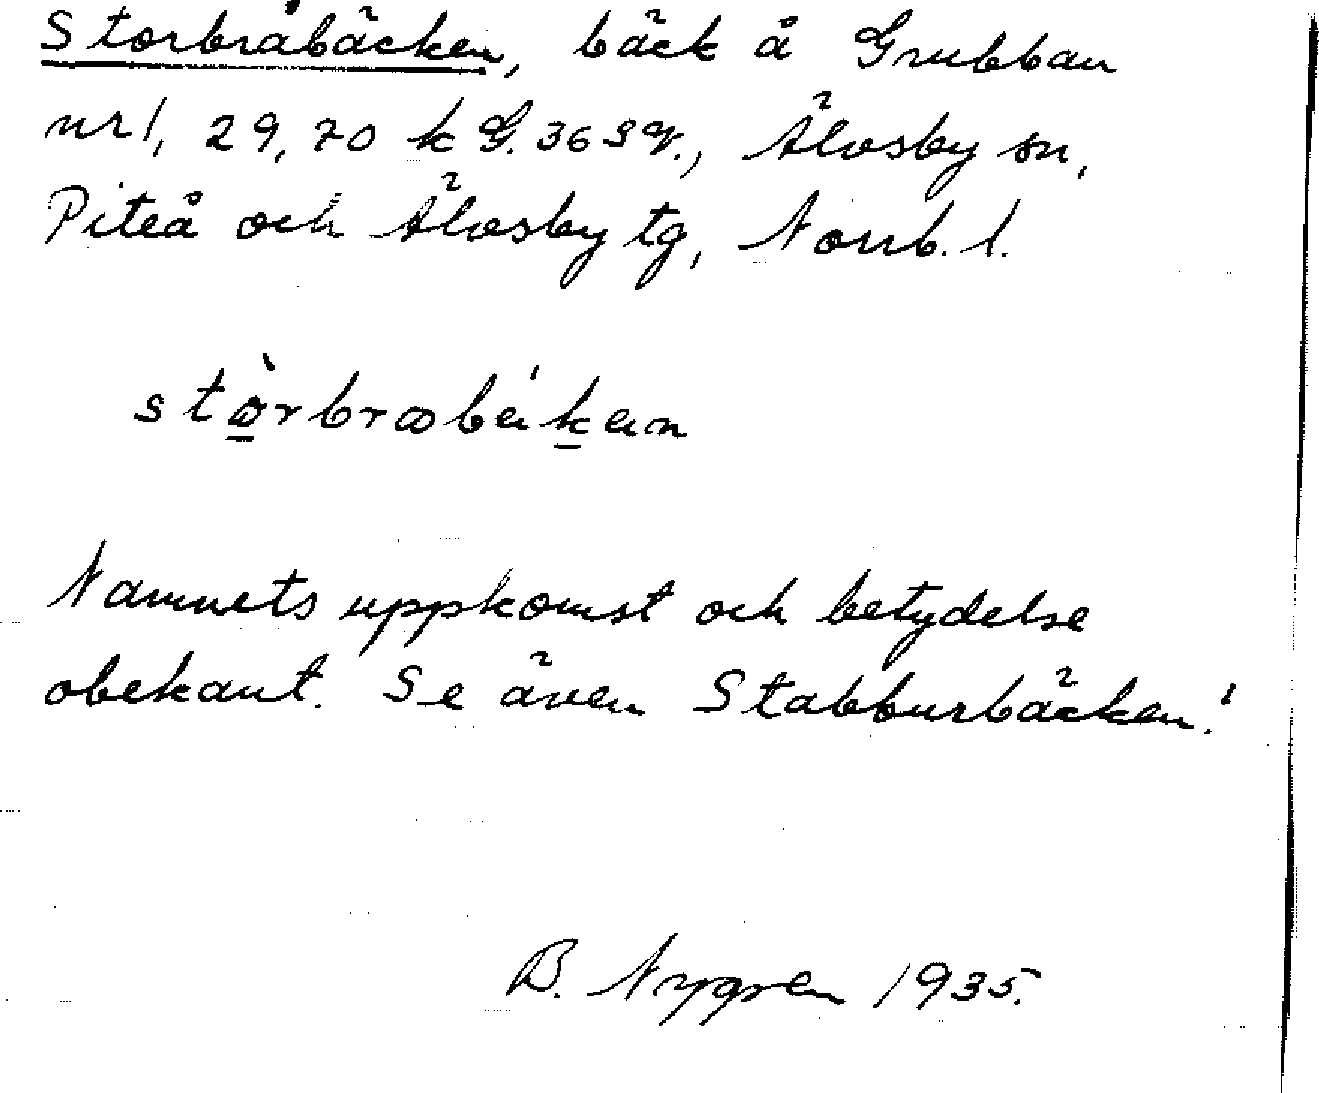 Storbråbäcken, bäck å Grubban
nr 1, 29, 70 k G. 36 SV., Älvsby sn,
Piteå och Älvsby tg, Norrb. l.
stòrbrabéiken
Namnets uppkomst och betydelse
obekant. Se även Stabburbäcken!
B. Nygren 1935.